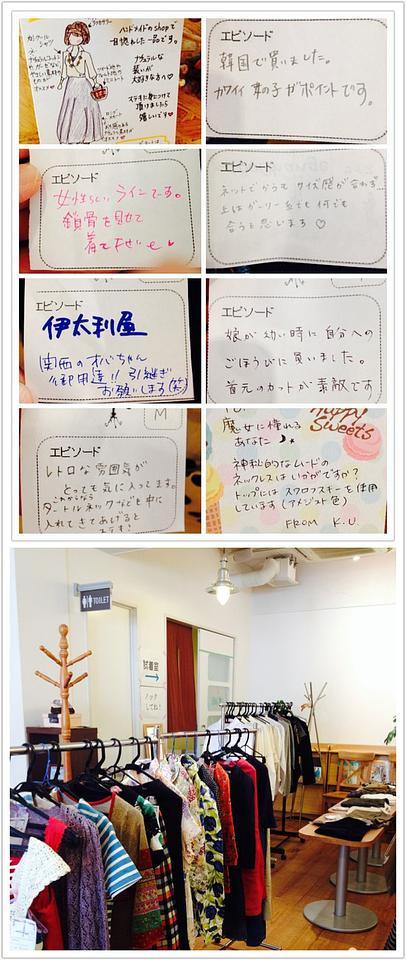 ハンドメイドのshopで
一目惚れした一品です。
ナチュラルな
装いが
大好きなあなへ♡
ステキに身につけて
頂けましたら
嬉しいです♥
エピソード
韓国で買いました。
カワイイ 茶の子がポイントです。
エピソード
女性らしいラインです。
鎖骨を見せて
着て下せい
エピソード
ネットでかうて サイズ感が合わず…
上はガーリー系でも何でも
合うと思います♡
エピソード
伊太利屋
関西のオバちゃん
御用達!! 引継ぎ
お願いします(笑)
エピソード
娘が幼い時に自分への
ごほうびに買いました。
首元のカットが素敵です
M
エピソード
レトロな雰囲気が
とっても気に入ってます。
これからなら
タートルネックなどを中に
入れてきてあげると
Happy
Sweets
魔女に憧れる
あなた
神秘的なムードの
ネックレスはいかがですか?
トップにはスワロフスキーを使用
しています(アメジスト色)
FROM K.U.
TOILET
試着室
→
ノック
してね!